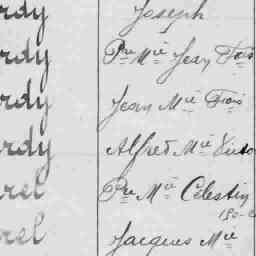 rdy Joseph
rdy Pre Mie Jean Fois
rdy Jean Mie Fois
rdy Alfred Mie Victo
rel Pre Mie Célestin
rel Jacques Mie